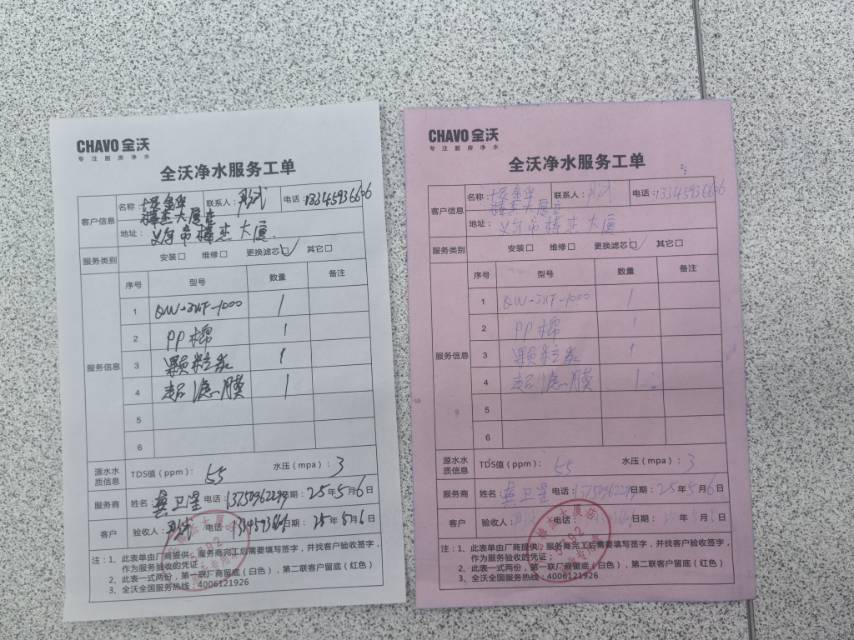 CHAVO 全沃
专注厨房净水
全沃净水服务工单
客户信息
名称: 联系人: 电话:
楼杰大厦店
地址: 义乌市楼杰大厦
服务类别 安装□ 维修□ 更换滤芯□✓ 其它□
服务信息
序号 型号 数量 备注
1 QW-3UF-1000 1
2 PP棉 1
3 颗粒炭 1
4 超滤膜 1
5
6
源水水质信息 TDS值(ppm): 55 水压(mpa): 3
服务商 姓名 龚卫星 电话: 日期: 25年5月6日
客户 验收人: 电话: 日期: 25年5月6日
注:1、此表单由厂商提供,服务商完工后需要填写签字,并找客户验收签字,
作为服务验收的凭证
2、此表一式两份,第一联厂商留底(白色),第二联客户留底(红色)
3、全沃全国服务热线:4006121926
CHAVO 全沃
专注厨房净水
全沃净水服务工单
客户信息
名称: 联系人: 电话:
楼杰大厦店
地址: 义乌市楼杰大厦
服务类别 安装□ 维修□ 更换滤芯□✓ 其它□
服务信息
序号 型号 数量 备注
1 QW-3UF-1000 1
2 PP棉 1
3 颗粒炭 1
4 超滤膜 1
5
6
源水水质信息 TDS值(ppm): 55 水压(mpa): 3
服务商 姓名: 龚卫星 电话: 日期: 25年5月6日
客户 验收人: 电话: 日期: 年 月 日
注:1、此表单由厂商提供,服务商完工后需要填写签字,并找客户验收签字,
作为服务验收的凭证
2、此表一式两份,第一联厂商留底(白色),第二联客户留底(红色)
3、全沃全国服务热线:4006121926